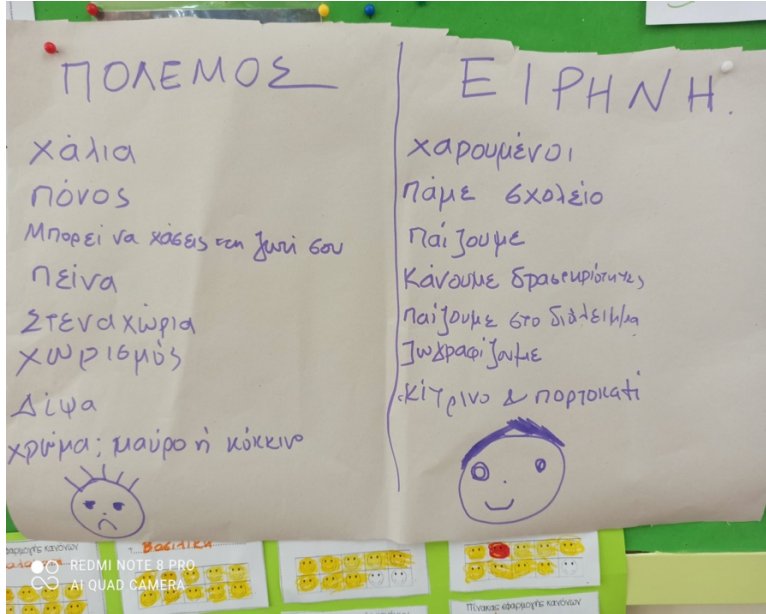 ΠΟΛΕΜΟΣ
χάλια
πόνος
Μπορεί να χάσεις τη ζωή σου
πείνα
Στεναχώρια
χωρισμός
Δίψα
χρώμα; μαύρο ή κόκκινο
ΕΙΡΗΝΗ.
χαρουμένοι
πάμε σχολείο
παίζουμε
Κάνουμε δραστηριότητες
παίζουμε στο διάλειμμα
ζωγραφίζουμε
κίτρινο & πορτοκαλί
εφαρμογής κανόνων
Βασιλική
Πίνακας εφαρμογής κανόνων
REDMI NOTE 8 PRO
AI QUAD CAMERA